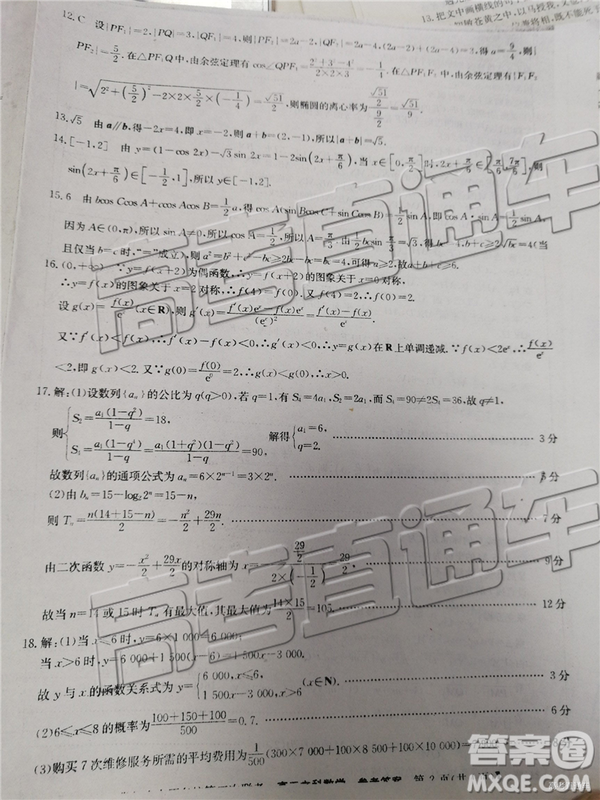 13.把文中画横线的句
12. C 设|PF₁|=2,|PQ|=3,|QF₁|=4,则|PF₂|=2a-2,|QF₂|=2a-4,(2a-2)+(2a-4)=3,得a=9/4,则
|PF₂|=5/2. 在△PF₁Q中,由余弦定理有cos∠QPF₁=(2²+3²-4²)/(2×2×3)=-1/4. 在△PF₁F₂中,由余弦定理有|F₁F₂
|=√(2²+(5/2)²-2×2×5/2×(-1/4))=√51/2,则椭圆的离心率为(√51/2)/(9/2)=√51/9.
13. √5 由a∥b,得-2x=4,即x=-2,则a+b=(2,-1),所以|a+b|=√5.
14. [-1,2] 由y=(1-cos 2x)-√3sin 2x=1-2sin(2x+π/6),当x∈[0,π/2]时,2x+π/6∈[π/6,7π/6],则
sin(2x+π/6)∈[-1/2,1],所以y∈[-1,2].
15. 6 由bcos Ccos A+ccos Acos B=1/2a,得cos A(sin Bcos C+sin Ccos B)=1/2sin A,即cos A·sin A=1/2sin A,
因为A∈(0,π),所以sin A≠0,所以cos A=1/2,所以A=π/3.由1/2bcsin π/3=√3,得bc=4,b+c≥2√bc=4(当
且仅当b=c时,"="成立),则a²=b²+c²-bc≥2bc-bc=bc=4,可得a≥2,故a+b+c≥6.
16. (0,+∞) ∵y=f(x+2)为偶函数,∴y=f(x+2)的图象关于x=0对称,
∴y=f(x)的图象关于x=2对称,∴f(4)=f(0).又f(4)=2,∴f(0)=2.
设g(x)=f(x)/eˣ(x∈R),则g′(x)=(f′(x)eˣ-f(x)eˣ)/(eˣ)²=(f′(x)-f(x))/eˣ.
又∵f′(x)<f(x),∴f′(x)-f(x)<0,∴g′(x)<0,∴y=g(x)在R上单调递减.∵f(x)<2eˣ,∴f(x)/eˣ
<2,即g(x)<2.又∵g(0)=f(0)/e⁰=2,∴g(x)<g(0),∴x>0.
17.解:(1)设数列{aₙ}的公比为q(q>0),若q=1,有S₄=4a₁,S₂=2a₁,而S₄=90≠2S₂=36,故q≠1,
则{S₂=a₁(1-q²)/(1-q)=18, S₄=a₁(1-q⁴)/(1-q)=a₁(1+q²)(1-q²)/(1-q)=90, 解得{a₁=6, q=2. 3分
故数列{aₙ}的通项公式为aₙ=6×2ⁿ⁻¹=3×2ⁿ. 5分
(2)由bₙ=15-log₂2ⁿ=15-n,
则Tₙ=n(14+15-n)/2=-n²/2+29n/2. 7分
由二次函数y=-x²/2+29x/2的对称轴为x=-(29/2)/(2×(-1/2))=29/2, 9分
故当n=14或15时Tₙ有最大值,其最大值为(14×15)/2=105. 12分
18.解:(1)当x≤6时,y=6×1 000=6 000;
当x>6时,y=6 000+1 500(x-6)=1 500x-3 000,
故y与x的函数关系式为y={6 000,x≤6, 1 500x-3 000,x>6 (x∈N). 3分
(2)6≤x≤8的概率为(100+150+100)/500=0.7. 6分
(3)购买7次维修服务所需的平均费用为1/500(300×7 000+100×8 500+100×10 000)
高三文科数学 参考答案 第2页(共
高考直通车
答案圈